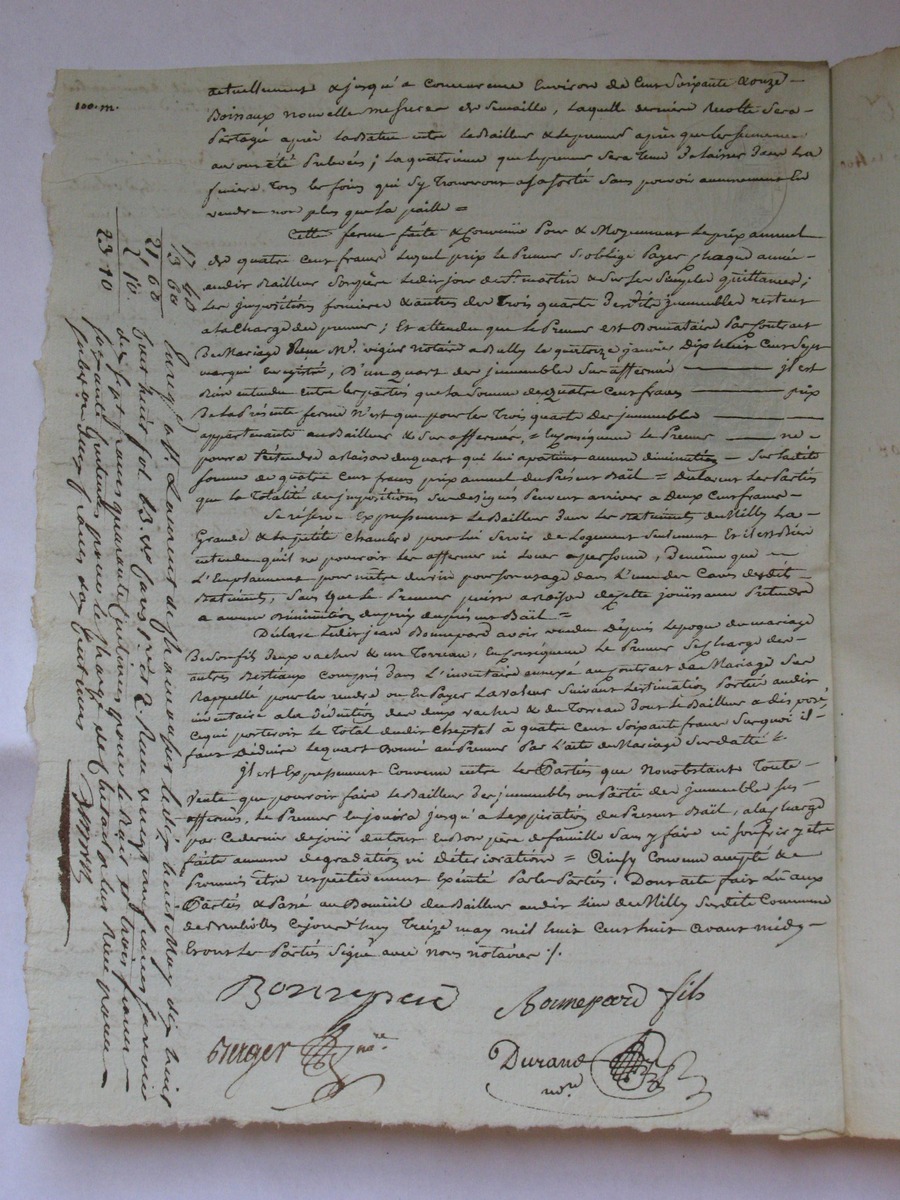 100. m.
actuellement & jusqu'a concurrence Environ de Cent Soixante & onze
Boissaux nouvelle mesure de Semaille, laquelle derniere Recolte Sera
Partagé après la Batue entre le Bailleur & Lepreneur après que les semences
auront été Prelevés; La quatrieme que lepreneur sera Tenu De laisser Dans La
Tous les foins qui Sy Trouveront a sa Sortie Sans pouvoir aucunement En
vendre non plus que La paille =
Cette ferme faite & Convenüe Pour & Moyennant Le prix annuel
de quatre Cent francs Lequel prix Le Preneur S'oblige Payer Chaque année
audit Bailleur Son père Ledit jour de St. martin & Sur Ses Simples quittances;
Les impositions foncieres & autres des Trois quarts desdits immeubles restent
a la Charge du preneur; Et attendu que Le Preneur est Donnataire Par Contrat
De Mariage Reçu Me. vigier notaire a Bully le quatorze janvier Dix huit Cent Sept
Enregistré, D'un quart des immeubles Sus affermés jl est
Bien entendu entre les parties que La Somme de quatre Cent francs prix
De la Présente ferme N'est que pour les Trois quarts des jmmeubles
appartenants au Bailleur & Sus affermés, = En conséquence Le Preneur ne
pourra Prétendre a raison du quart qui lui apartient aucune diminution Sur ladite
Somme de quatre Cent francs prix annuel du Présent Bail = Declarent Les Parties
que la Totalité des jmpositions Sus designés Peuvent arriver a Deux Cent francs
Se réserve Expressement Le Bailleur Dans Les Batiments du Milly La
Grande & La petite Chambre pour Lui Servir de Logement Seulement Et il est Bien
entendu qu'il ne pourroit les affermer ni Louer a personne, De même que
L'Emplacement pour mettre du vin pour Son usage dans L'une des Caves desdits
Batiments, Sans que Le Preneur puisse a raison de cette jouissance Prétendre
a aucune Diminution du prix du présent Bail =
Déclare Ledit jean Bonnepard avoir vendu Depuis Lepoque du mariage
De Son fils Deux vaches & un Torreau, En conséquence Le Preneur Se Charge des
autres Bestiaux Compris Dans L'inventaire annexé au Contrat de Mariage Sus
Rappellé pour les rendre ou En Payer La valeur Suivant L'estimation Portée audit
inventaire a la Déduction des deux vaches & du Torreau Dont Le Bailleur a disposé,
Ce qui porteroit Le Total dudit Cheptel à quatre Cent Soixante francs Sur quoi il
faut Déduire Le quart Donné au Preneur Par L'acte de Mariage Sus datté
jl est Expressement Convenu entre Les Parties que Nonobstant Toute
Vente que pourroit faire Le Bailleur des jmmeubles ou Partie des jmmeubles Sus
affermés, Le Preneur En jouira jusqu'a L'expiration du Present Bail, a la Charge
par Ce dernier de jouir du tout En Bon père de famille Sans y faire ni Souffrir y être
faite aucune dégradation ni déteriorations = Ainsy Convenu accepté &
Promis être respectivement Exécuté Par les Parties. Dont acte fait Lu aux
Parties & Passé au Domicil du Bailleur audit Lieu du Milly Susdite Commune
de Cejourd'huy Treize may mil huit Cent huit avant midy
Et ont les Parties Signé avec Nous notaires ./.
Bonnepard
Bonnepard fils
Berger nre.
Durand
nore.
17 40
13 60
21 60
2 10
23 10
Enregé. à St. Laurent de Chamousset le dix huit May dix huit
Cent huit fol. 63. vo. Case 1re. Et 2. Reçu vingt un francs Savoir
dix Sept francs quarante Centimes pour le Bail et trois francs
Soixante Centimes pour la charge de
Subvon. deux francs dix Centimes